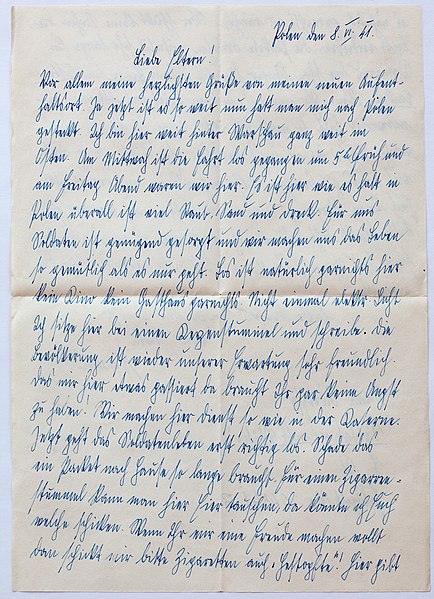 Polen den 8. VI. 41.
Liebe Eltern!
Vor allem meine herzlichsten Grüße von meinen neuen Aufent-
haltsort. Ja jetzt ist es so weit nun hatt man mich nach Polen
gesteckt. Ich bin hier weit hinter Warschau ganz weit im
Osten. Am Mittwoch ist die Fahrt los gegangen um 5 h früh und
am Freitag Abend waren wir hier. Es ist hier wie es halt in
Polen überall ist viel Staub, Sand und Dreck. Für uns
Soldaten ist genügend gesorgt und wir machen uns das Leben
so gemütlich als es nur geht. Los ist natürlich garnichts hier
kein Kino kein Gasthaus garnichts. Nicht einmal elektr. Licht
Ich sitze hier bei einen Kerzenstummel und schreibe. Die
Bevölkerung ist wieder unserer Erwartung sehr freundlich.
Das mir hier etwas passiert da braucht Ihr gar keine Angst
zu haben! Wir machen hier Dienst so wie in der Kaserne.
Jetzt geht das Soldatenleben erst richtig los. Schade das
ein Packet nach Hause so lange braucht. Für einen Zigarren-
stummel kann man hier Eier tauschen, da könnte ich Euch
welche schicken. Wenn Ihr mir eine Freude machen wollt
dan schickt mir bitte Zigaretten auch "Gestopfte"! Hier gibt